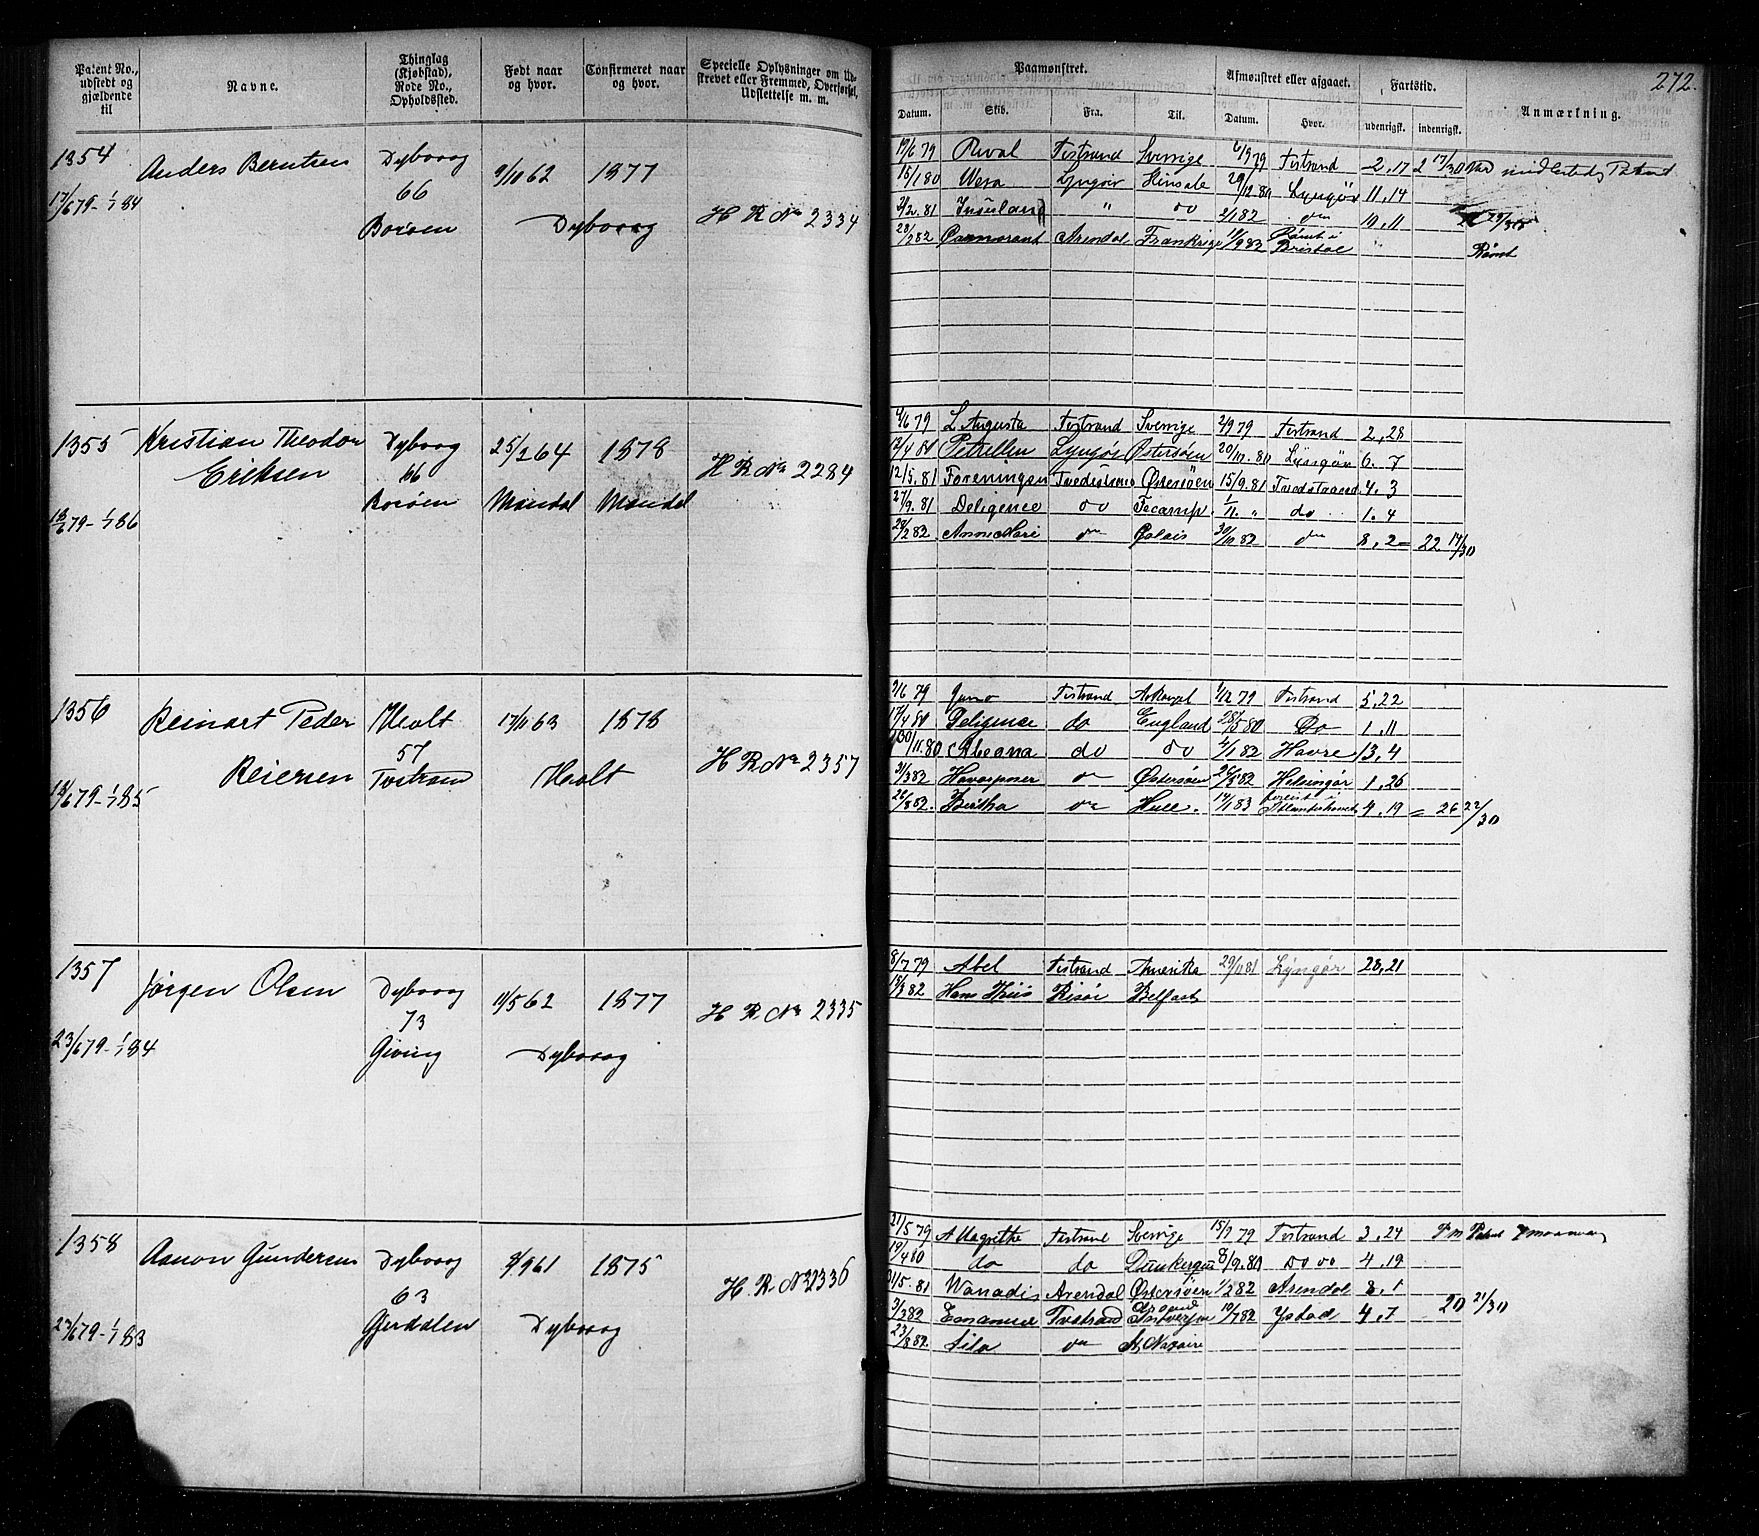 272.
Patent No., udstedt og gjældende til
Navne.
Thinglag (Kjøbstad), Rode No., Opholdssted.
Født naar og hvor.
Confirmeret naar og hvor.
Specielle Oplysninger om Udskrevet eller Fremmed, Overførsel, Udslettelse m. m.
Paamønstret.
Afmønstret eller afgaaet.
Fartstid.
Anmærkning.
Datum. Skib. Fra. Til. Datum. Hvor. udenrigsk. indenrigsk.
1354 Anders Berntsen Dybvaag 9/11 62 1877
17/6 79 - 1/1 84 66
Borøen Dybvaag H R No 2334
19/6 79 Rival Tvstrand Sverrige 6/9 79 Tvstrand 2,17 2 17/30
15/1 80 Wera Lyngør Kinsale 20/12.80 Lyngør 11,14
2/2.81 Insuland " do 2/1 82 do 10,11
28/2 82 Cormorant Arendal Frankrige 11/9 82 Rømt i Bristol " Rømt
1355 Kristian Theodor Eriksen Dybvaag 25/2 64 1878
66
Borøen Mandal Mandal H R No 2284
18/6 79 - 1/1 86
4/6 79 L. Augusta Tvstrand Sverrige 2/9 79 Tvstrand 2,28
12/4 80 Petrellen Lyngør Østersøen 20/10.80 Lyngør 6.7
12/5.81 Foreningen Tvedestrand Østersøen 15/9.81 Tvedestrand 4.3
27/9.81 Deligence do Fecamp. 1/11. " do 1.4
28/2 82 Anne Marie do Calais 30/10 82 do 8,2 = 22 14/30
1356 Reinart Peder Reiersen Holt 17/11 63 1878
57
Tvstrand Holt H R. No 2357
18/6 79 - 1/1 85
2/6 79 Juno Tvstrand Arkangel 1/12 79 Tvstrand 5,22
17/4 80 Deligence do England 28/5 80 Do 1.11
30/11.80 Abeona do do 4/1 82 Havre 13,4
31/3 82 do Østersøen 26/5 82 Helsingør 1,26
26/8 82. Bertha do Hull. 14/1 83 forlist i Atlanterhavet 4,19 = 26 22/30
1357 Jørgen Olsen Dybvaag 11/5 62 1877
73 H R. No 2335
23/6 79 - 1/1 84 Giving Dybvaag
8/7 79 Abel Tvstrand Amerika 29/11 81 Lyngør 28,21
18/3 82 Hans Hiis Risør Belfast
1358 Aanon Gundersen Dybvaag 9/9 61 1875
63 H. R. No 2336
23/6 79 - 1/1 83 Gjerdalen Dybvaag
21/5 79 A Magrethe Tvstrand Sverrige 15/9 79 Tvstrand 3,24
19/4 80 do do Dunkerque 8/9.80 Do do 4,19
31/5.81 Wanadis Arendal Østersøen 1/2 82 Arendal 8.1
3/3 82 Emanuel Tvstrand Antverpen 10/7 82 Ystad 4,7 20 21/30
23/8 82. Lila do St. Nazaire